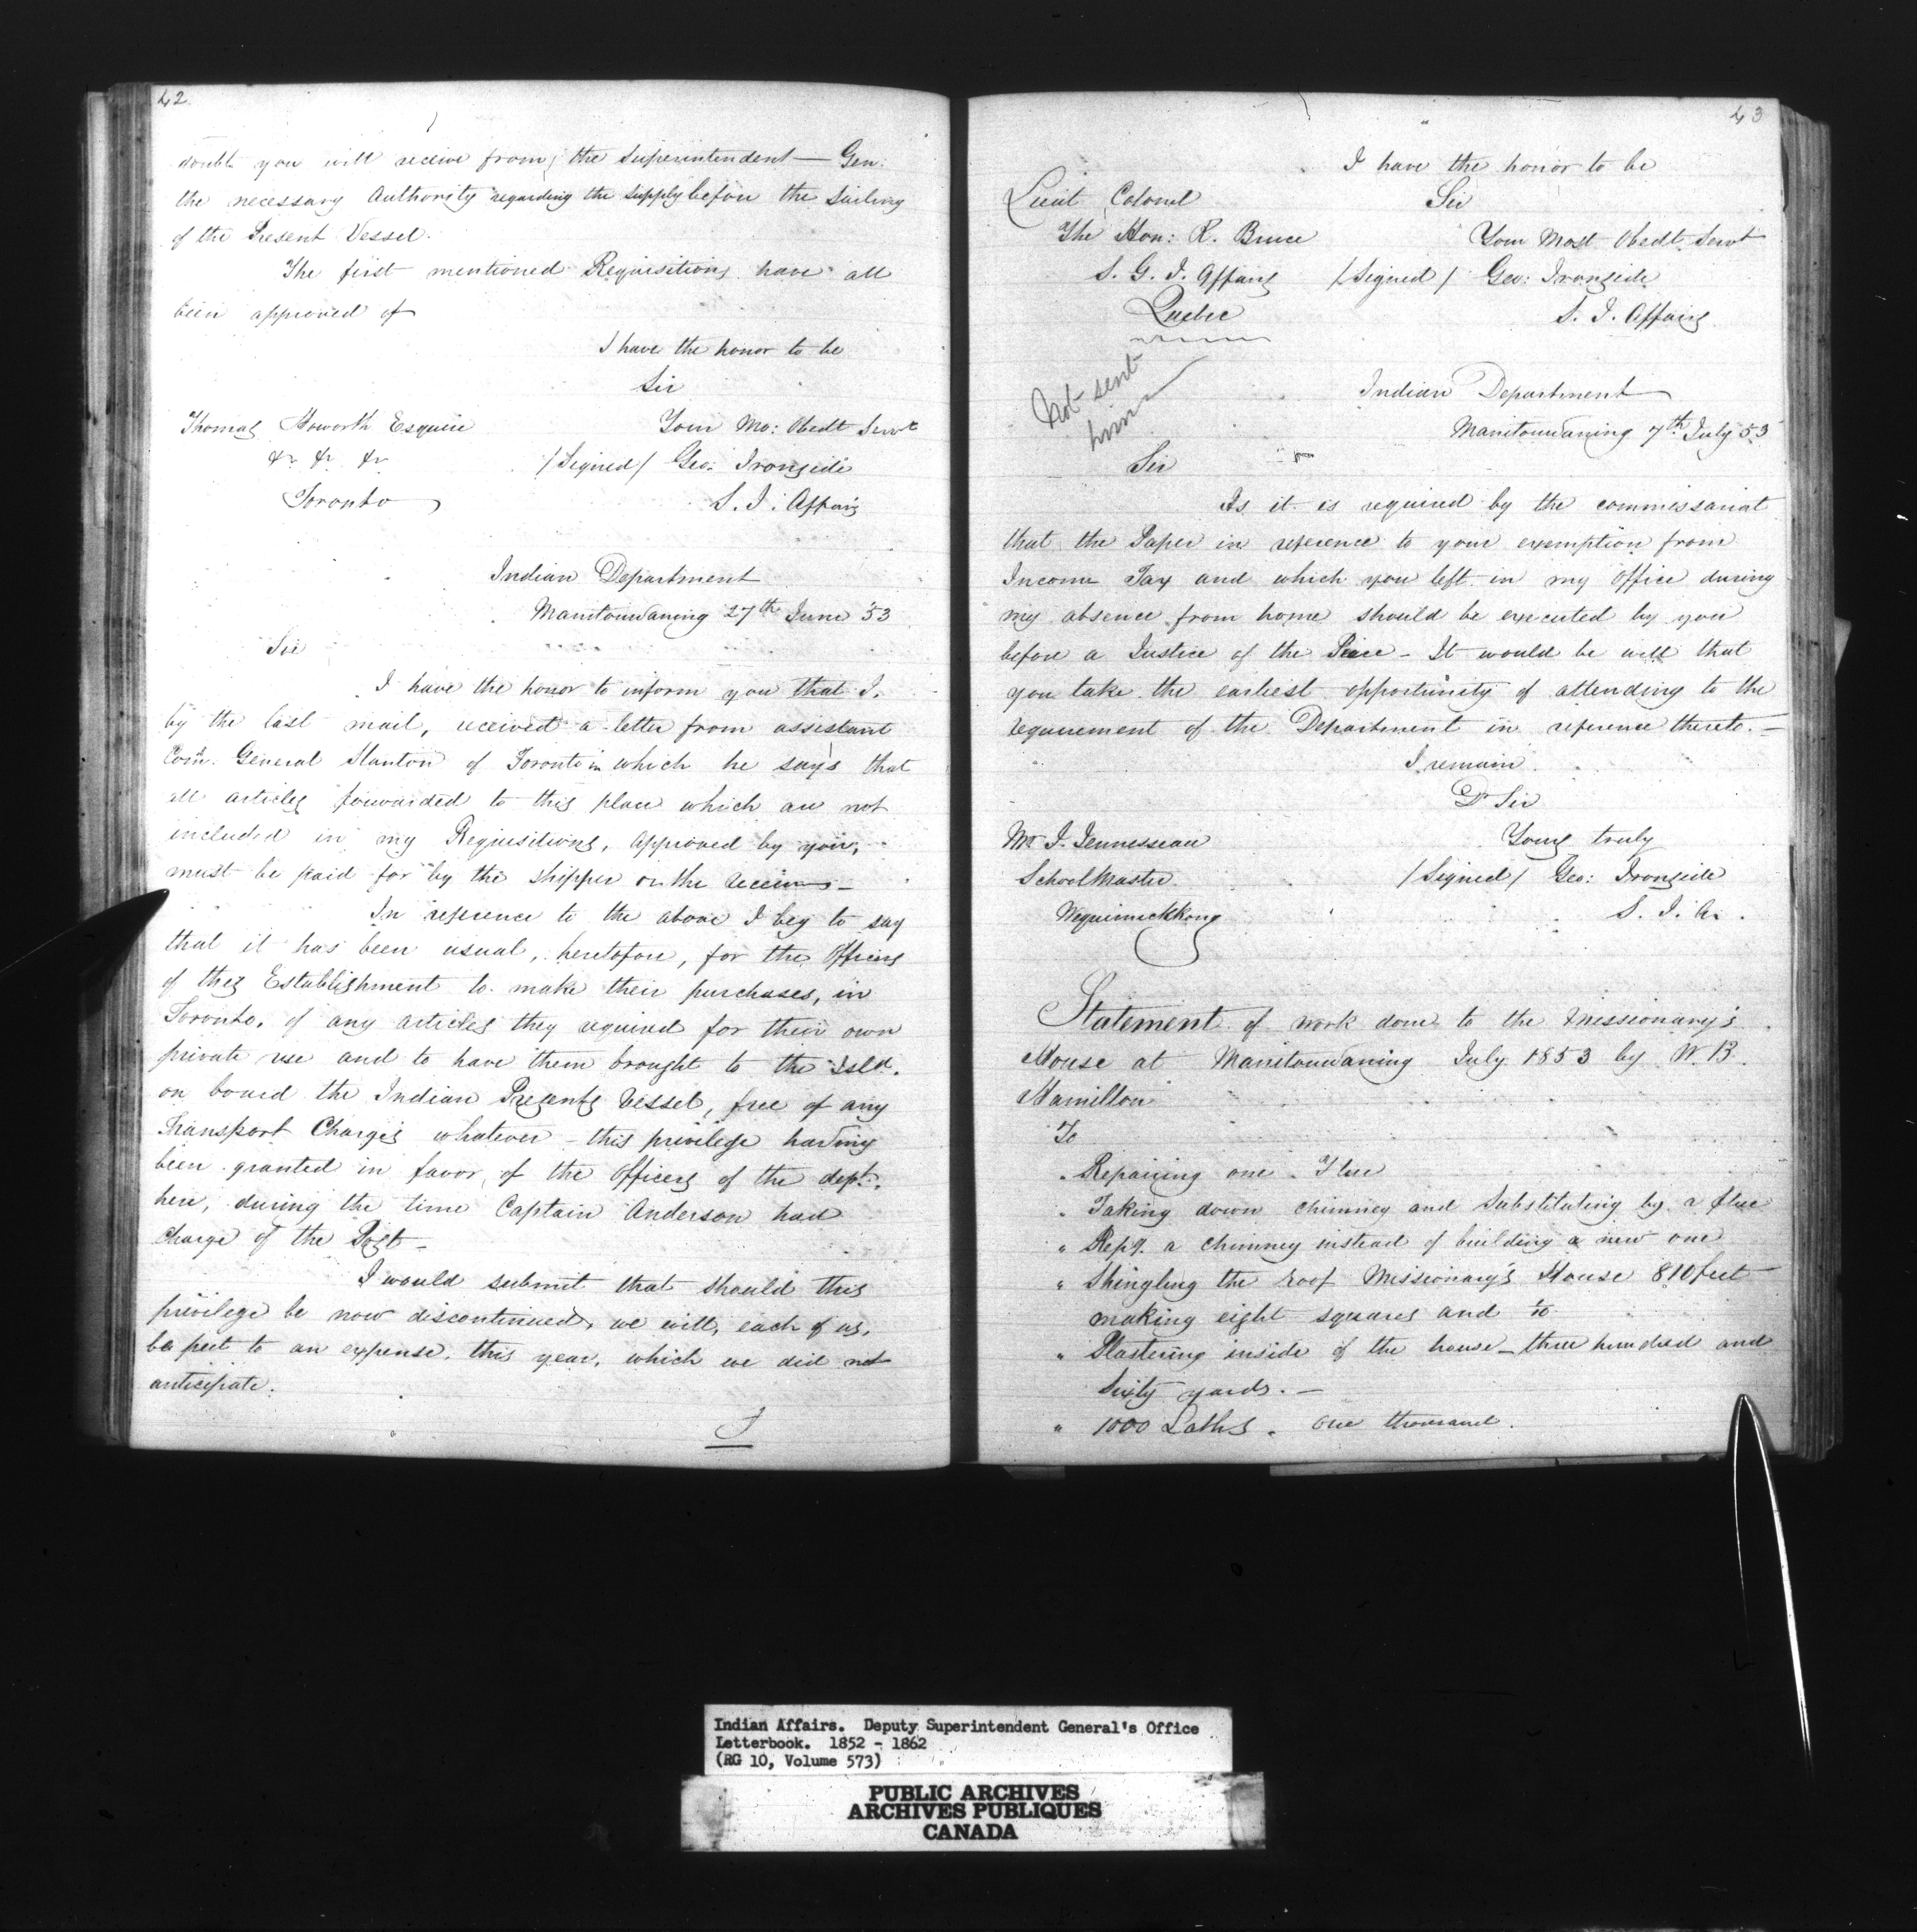 42
doubt you will receive from the Superintendent - Gen:
the necessary Authority regarding the supply before the Sailing
of the Present Vessel.
The first mentioned Requisitions have all
been approved of
I have the honor to be
Sir
Thomas Howorth Esquire
Your Mo: Obedt Servt
&c &c &c
/Signed/ Geo: Ironside
Toronto
S. I. Affairs
Indian Department
Manitouwaning 27th June 53
Sir
I have the honor to inform you that I,
by the last mail, received a letter from assistant
Com. General Stanton of Toronto in which he says that
all articles forwarded to this place which are not
included in my Requisitions, approved by you,
must be paid for by the shipper or the receiver -
In reference to the above I beg to say
that it has been usual, heretofore, for the Officers
of this Establishment to make their purchases, in
Toronto, of any articles they required for their own
private use and to have them brought to the Isld.
on board the Indian Presents Vessel, free of any
Transport Charges whatever - this privilege having
been granted in favor of the Officers of the dept.
here, during the time Captain Anderson had
Charge of the Post -
I would submit that should this
privilege be now discontinued, we will, each of us,
be put to an expense, this year, which we did not
anticipate.
I
43
I have the honor to be
Lieut Colonel
Sir
The Hon: R. Bruce
Your Most Obedt Servt
S. G. I. Affairs
/Signed/ Geo: Ironside
Quebec
S. I. Affairs
Not sent
him
Indian Department
Manitouwaning 7th July 53
Sir
As it is required by the commissariat
that the Paper in reference to your exemption from
Income Tax and which you left in my Office during
my absence from home should be executed by you
before a Justice of the Peace - It would be well that
you take the earliest opportunity of attending to the
requirement of the Department in reference thereto. -
I remain
Dr Sir
Mr I. Jennesseau
Yours truly
SchoolMaster
/Signed/ Geo: Ironside
Wequimickkong
S. I. A.
Statement of work done to the Missionary's
House at Manitouwaning July 1853 by W. B.
Hamilton
To
" Repairing one Flue
" Taking down chimney and Substituting by a flue
" Repg. a chimney instead of building a new one
" Shingling the roof Missionary's House 810 feet
making eight squares and 10
" Plastering inside of the house - three hundred and
Sixty yards. -
" 1000 Laths. one thousand.
Indian Affairs. Deputy Superintendent General's Office
Letterbook. 1852 - 1862
(RG 10, Volume 573)
PUBLIC ARCHIVES
ARCHIVES PUBLIQUES
CANADA